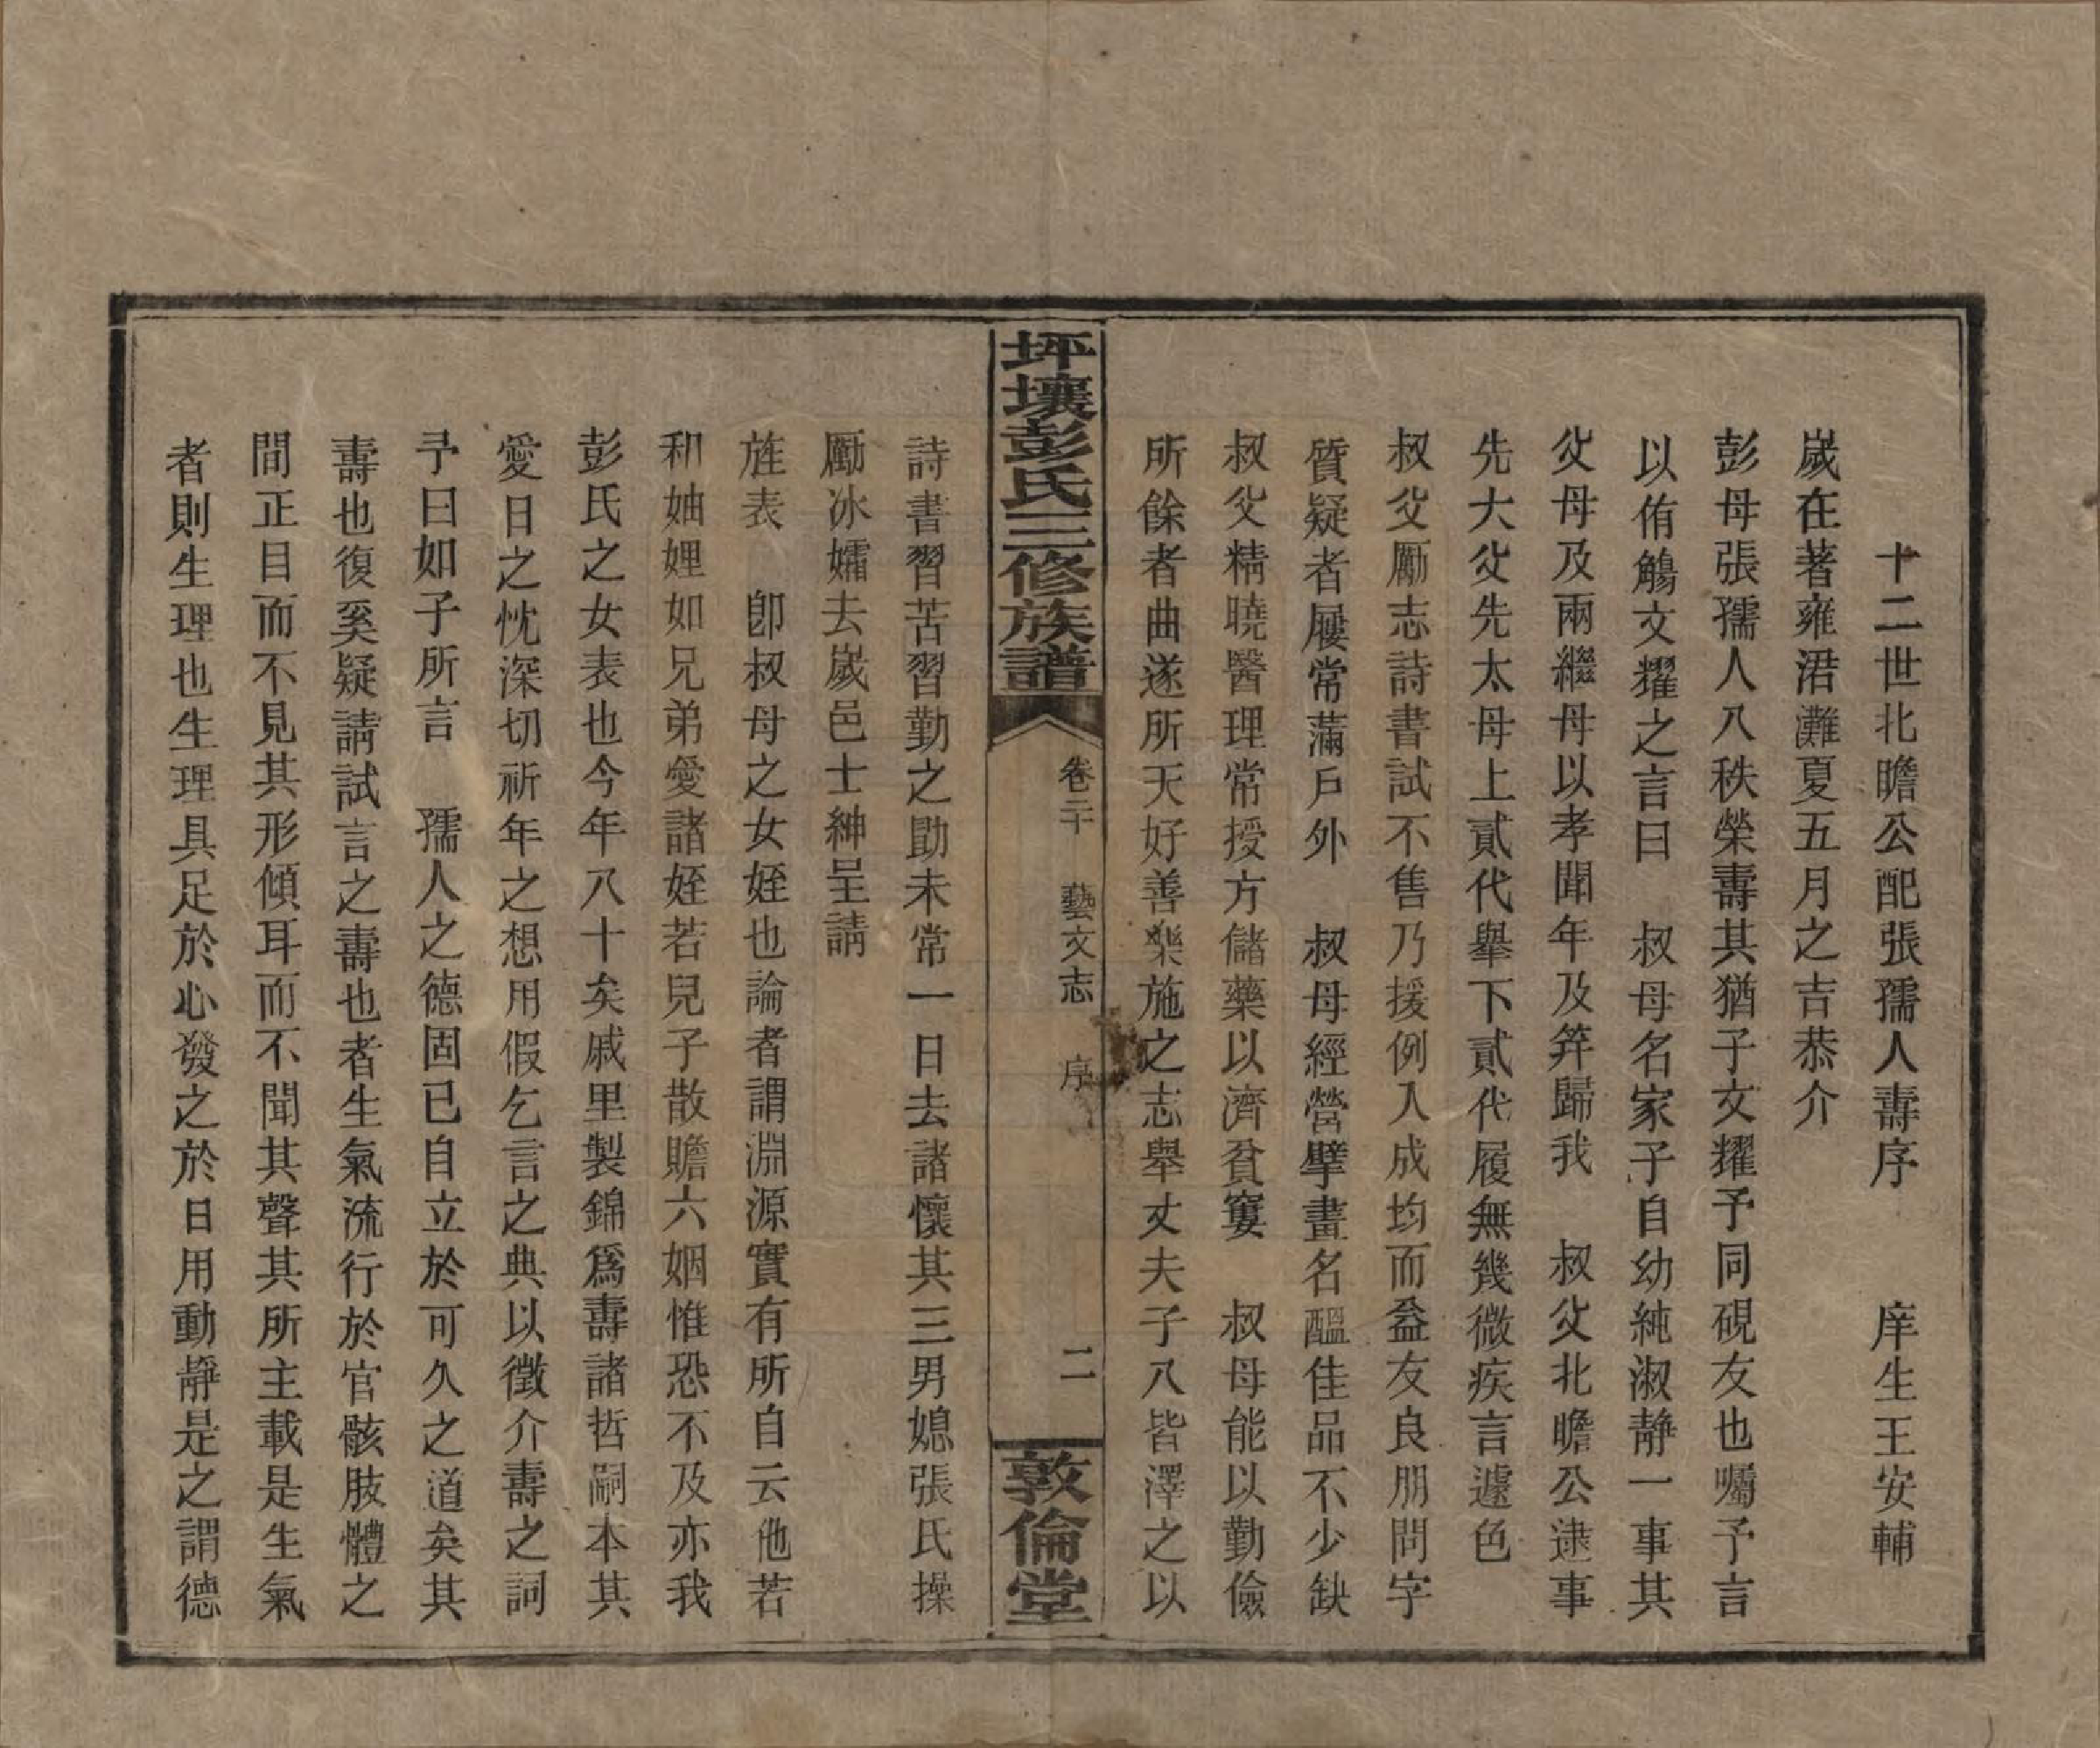 十二世北瞻公配張孺人壽序　庠生王安輔
歲在著雍涒灘夏五月之吉恭介
彭母張孺人八秩榮壽其猶子文耀予同硯友也囑予言
以侑觴文耀之言曰　叔母名家子自幼純淑靜一事其
父母及兩繼母以孝聞年及笄歸我　叔父北瞻公逮事
先大父先太母上貳代舉下貳代履無幾微疾言遽色
叔父勵志詩書試不售乃援例入成均而益友良朋問字
質疑者屨常滿戶外　叔母經營擘畫名醞佳品不少缺
叔父精曉醫理常授方儲藥以濟貧窶　叔母能以勤儉
所餘者曲遂所天好善樂施之志舉丈夫子八皆澤之以
坪壤彭氏三修族譜
卷二十　藝文志　序
二
敦倫堂
詩書習苦習勤之勖未常一日去諸懷其三男媳張氏操
勵冰孀去歲邑士紳呈請
旌表　卽叔母之女姪也論者謂淵源實有所自云他若
和妯娌如兄弟愛諸姪若兒子散贍六姻惟恐不及亦我
彭氏之女表也今年八十矣戚里製錦爲壽諸哲嗣本其
愛日之忱深切祈年之想用假乞言之典以徵介壽之詞
予曰如子所言　孺人之德固已自立於可久之道矣其
壽也復奚疑請試言之壽也者生氣流行於官骸肢體之
間正目而不見其形傾耳而不聞其聲其所主載是生氣
者則生理也生理具足於心發之於日用動靜是之謂德